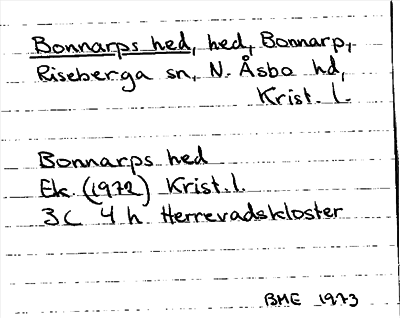 Bonnarps hed, hed, Bonnarp,
Riseberga sn, N. Åsbo hd,
Krist. l.
Bonnarps hed
Ek. (1972) Krist. l.
3C 4h Herrevadskloster
BME 1973